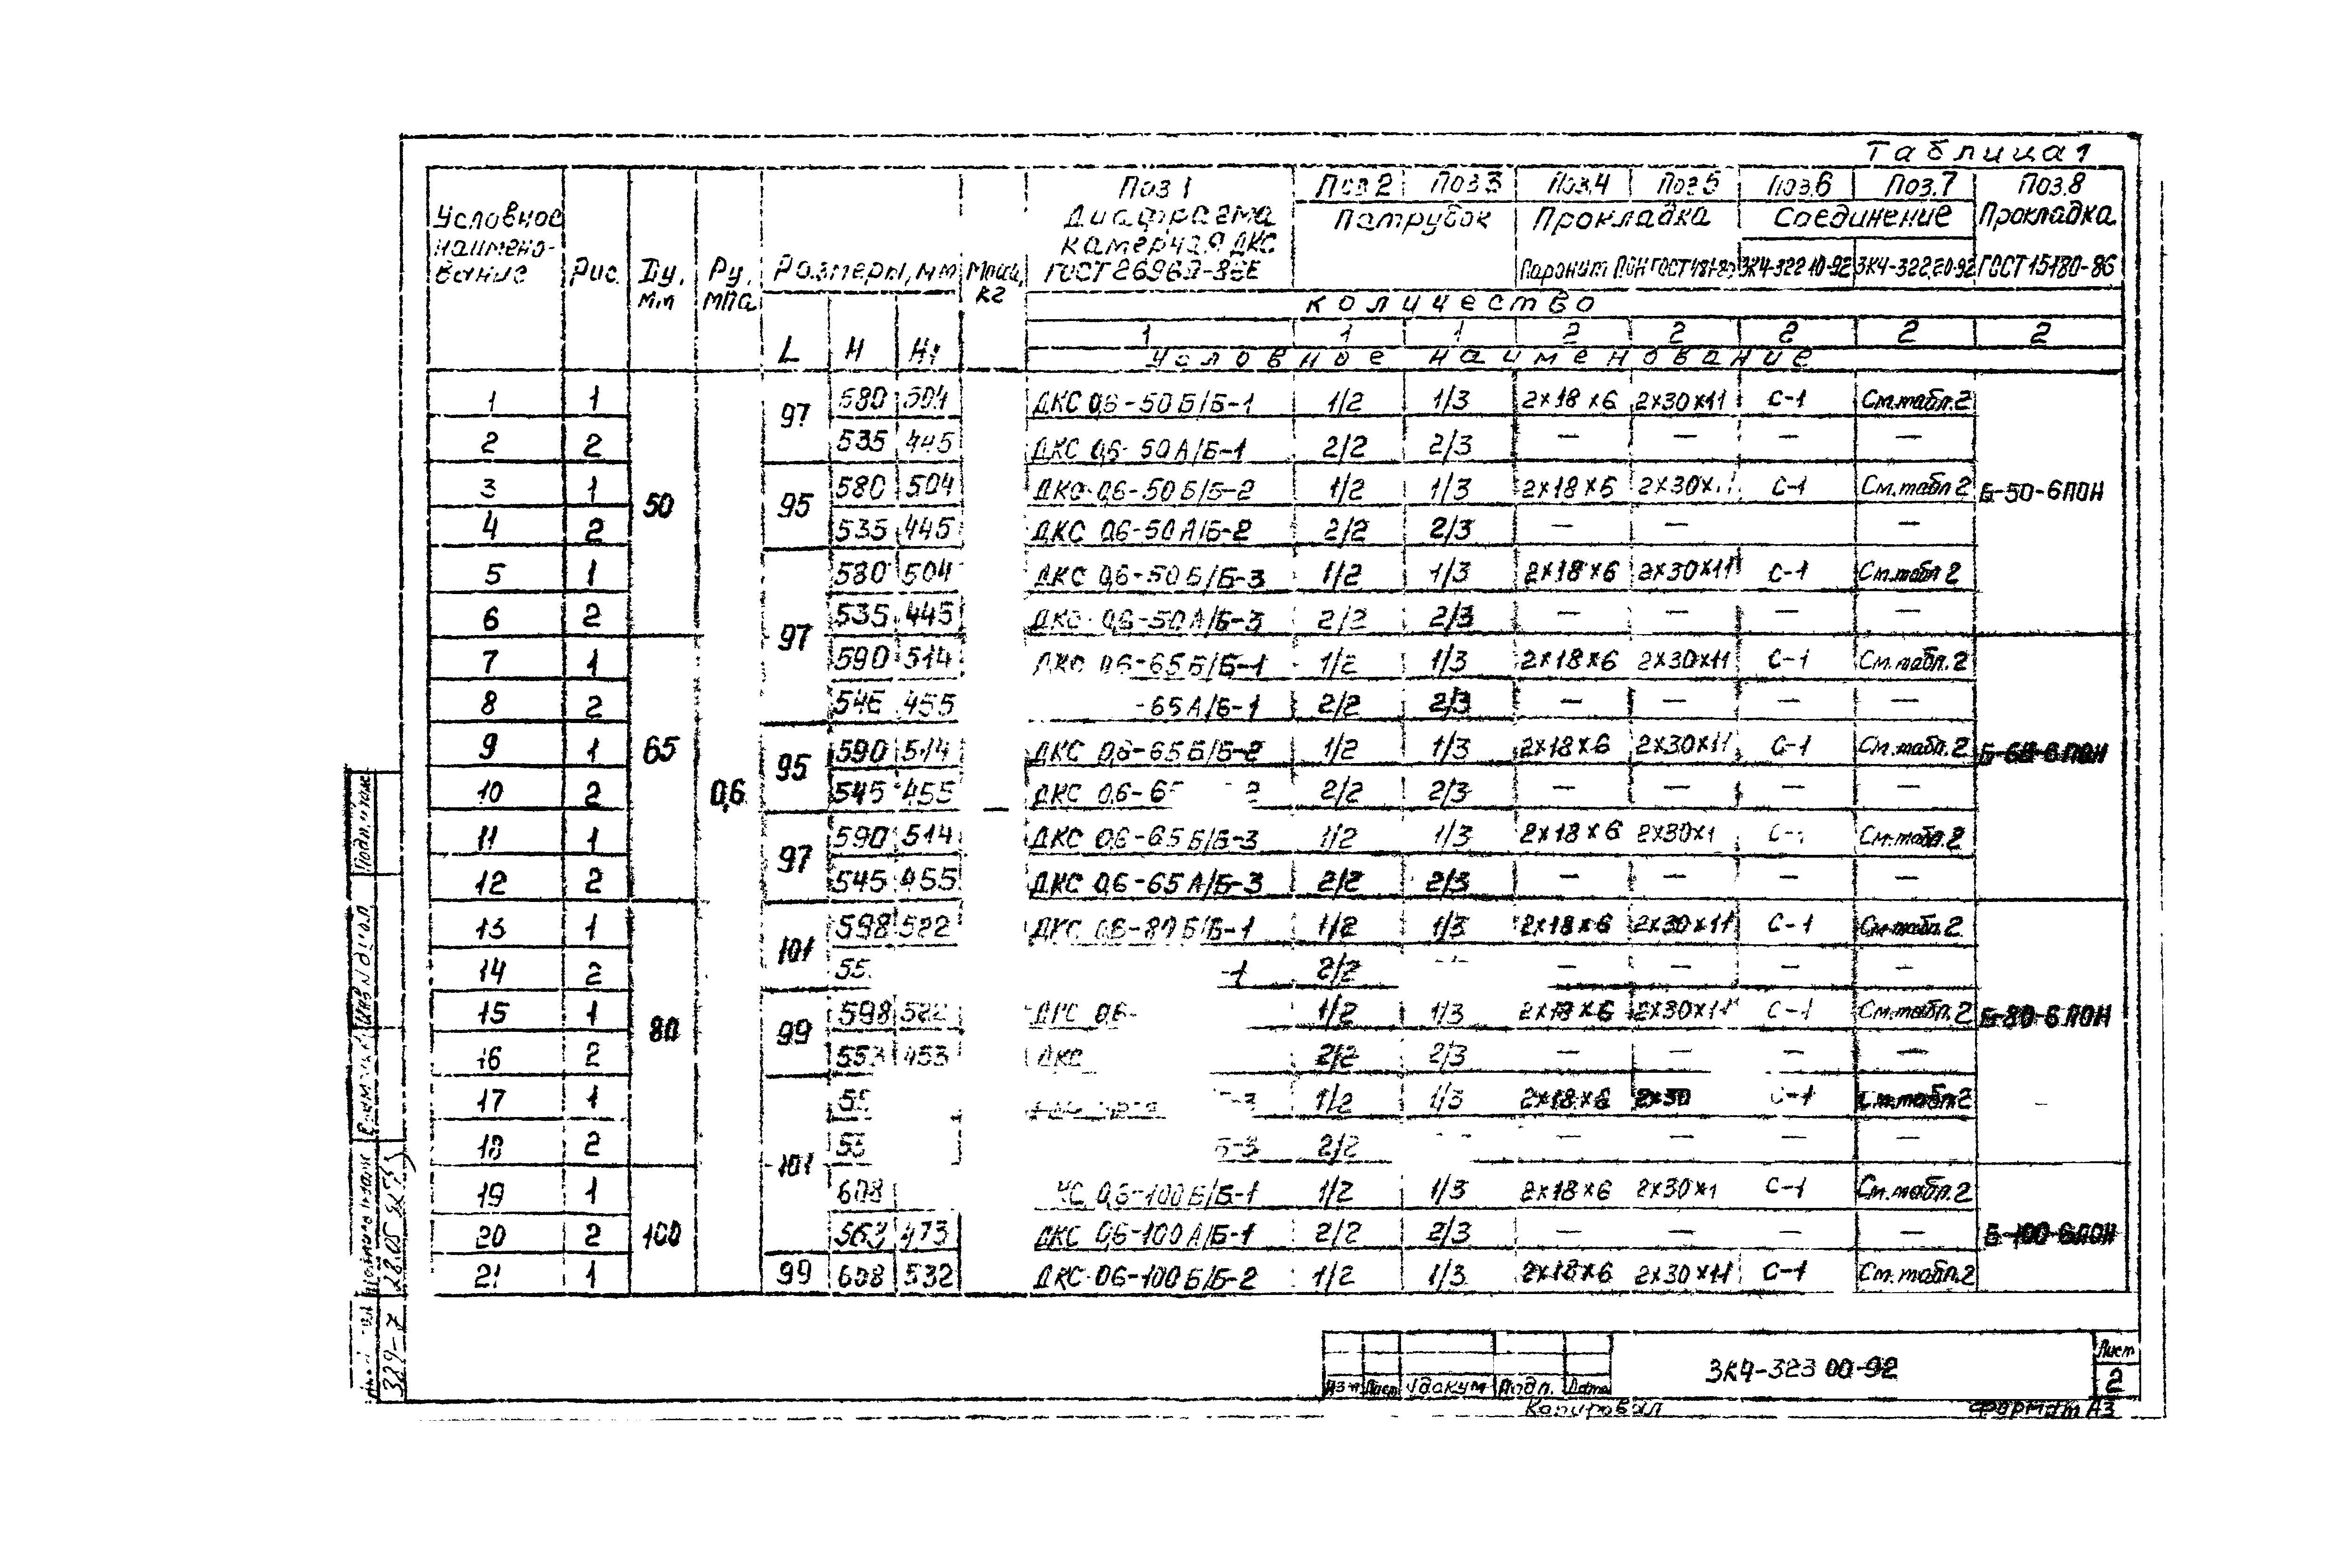 Таблица 1
Условное наименование Рис. Ду, мм Ру, мПа Размеры, мм Масса, кг Поз 1 Диафрагма камерная ДКС Поз 2 Поз 3 Патрубок Поз.4 Поз 5 Прокладка Поз.6 Поз.7 Соединение Поз.8 Прокладка
Паронит ПОН ЗК4-322.20-92 ГОСТ 15180-86
количество
L H H1 1 1 1 2 2 2 2 2
Условное наименование
1 1 50 0,6 97 580 504 ДКС 0,6-50Б/Б-1 1/2 1/3 2×18×6 2×30×11 С-1 См.табл.2 Б-50-6ПОН
2 2 535 445 ДКС 0,6-50А/Б-1 2/2 2/3 — — — —
3 1 95 580 504 ДКС 0,6-50Б/Б-2 1/2 1/3 2×18×6 2×30× С-1 См.табл 2
4 2 535 445 ДКС 0,6-50А/Б-2 2/2 2/3 — — —
5 1 97 580 504 ДКС 0,6-50Б/Б-3 1/2 1/3 2×18×6 2×30×11 С-1 См.табл 2
6 2 535 445 ДКС 0,6-50А/Б-3 2/2 2/3 — — — —
7 1 65 590 514 ДКС 0,6-65Б/Б-1 1/2 1/3 2×18×6 2×30×11 С-1 См.табл.2
8 2 455 -65А/Б-1 2/2 2/3 — — — —
9 1 95 590 514 ДКС 0,6-65Б/Б-2 1/2 1/3 2×18×6 2×30×11 С-1 См.табл.2
10 2 545 455 — ДКС 0,6-6 2 2/2 2/3 — — — —
11 1 97 590 514 ДКС 0,6-65Б/Б-3 1/2 1/3 2×18×6 2×30×1 С- См.табл.2
12 2 545 455 ДКС 0,6-65А/Б-3 2/2 2/3 — — — —
13 1 80 101 598 522 ДКС 0,6-80Б/Б-1 1/2 1/3 2×18×6 2×30×11 С-1 См.табл.2 Б-80-6ПОН
14 2 55 -1 2/2 — — — —
15 1 99 598 522 ДКС 0,6- 1/2 1/3 2×18×6 2×30×11 С-1 См.табл.2
16 2 553 453 ДКС 2/2 2/3 — — — —
17 1 101 -3 1/2 1/3 2×18×6 2×30 С-1 См.табл.2
18 2 55 Б-3 2/2 — — — —
19 1 100 608 С 0,6-100Б/Б-1 1/2 1/3 2×18×6 2×30×1 С-1 См.табл.2 Б-100-6ПОН
20 2 563 473 ДКС 0,6-100А/Б-1 2/2 2/3 — — — —
21 1 99 608 532 ДКС 0,6-100Б/Б-2 1/2 1/3 2×18×6 2×30×11 С-1 См.табл.2
ЗК4-323 00-92
Лист
2
Лист №докум Подп. Дата
Копировал
Формат А3
329-7 28.05